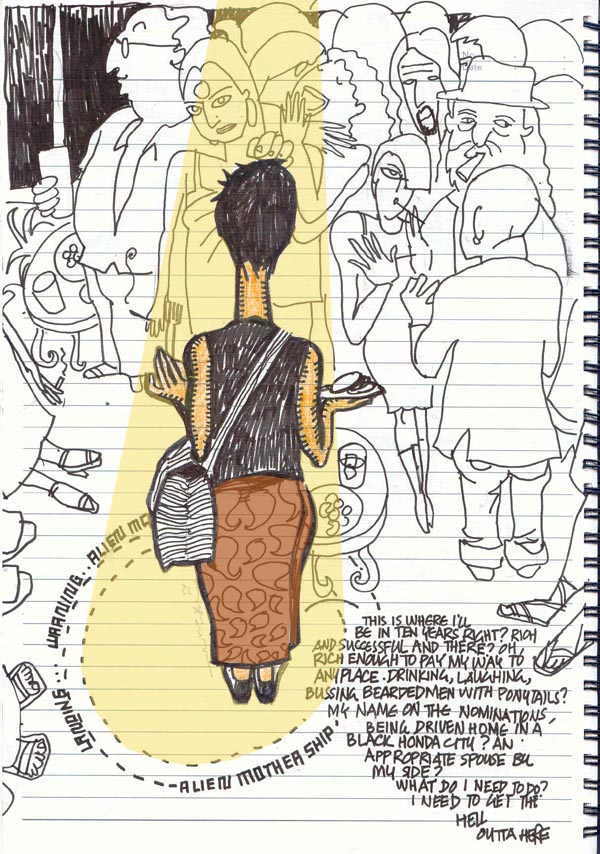 No
Date
LANDING... WARNING... ALIEN MO
ALIEN MOTHER SHIP
THIS IS WHERE I'LL
BE IN TEN YEARS RIGHT? RICH
AND SUCCESSFUL AND THERE? OH,
RICH ENOUGH TO PAY MY WAY TO
ANYPLACE. DRINKING, LAUGHING,
BUSSING BEARDEDMEN WITH PONYTAILS?
MY NAME ON THE NOMINATIONS,
BEING DRIVEN HOME IN A
BLACK HONDA CITY? AN
APPROPRIATE SPOUSE BY
MY SIDE?
WHAT DO I NEED TO DO?
I NEED TO GET THE
HELL
OUTTA HERE